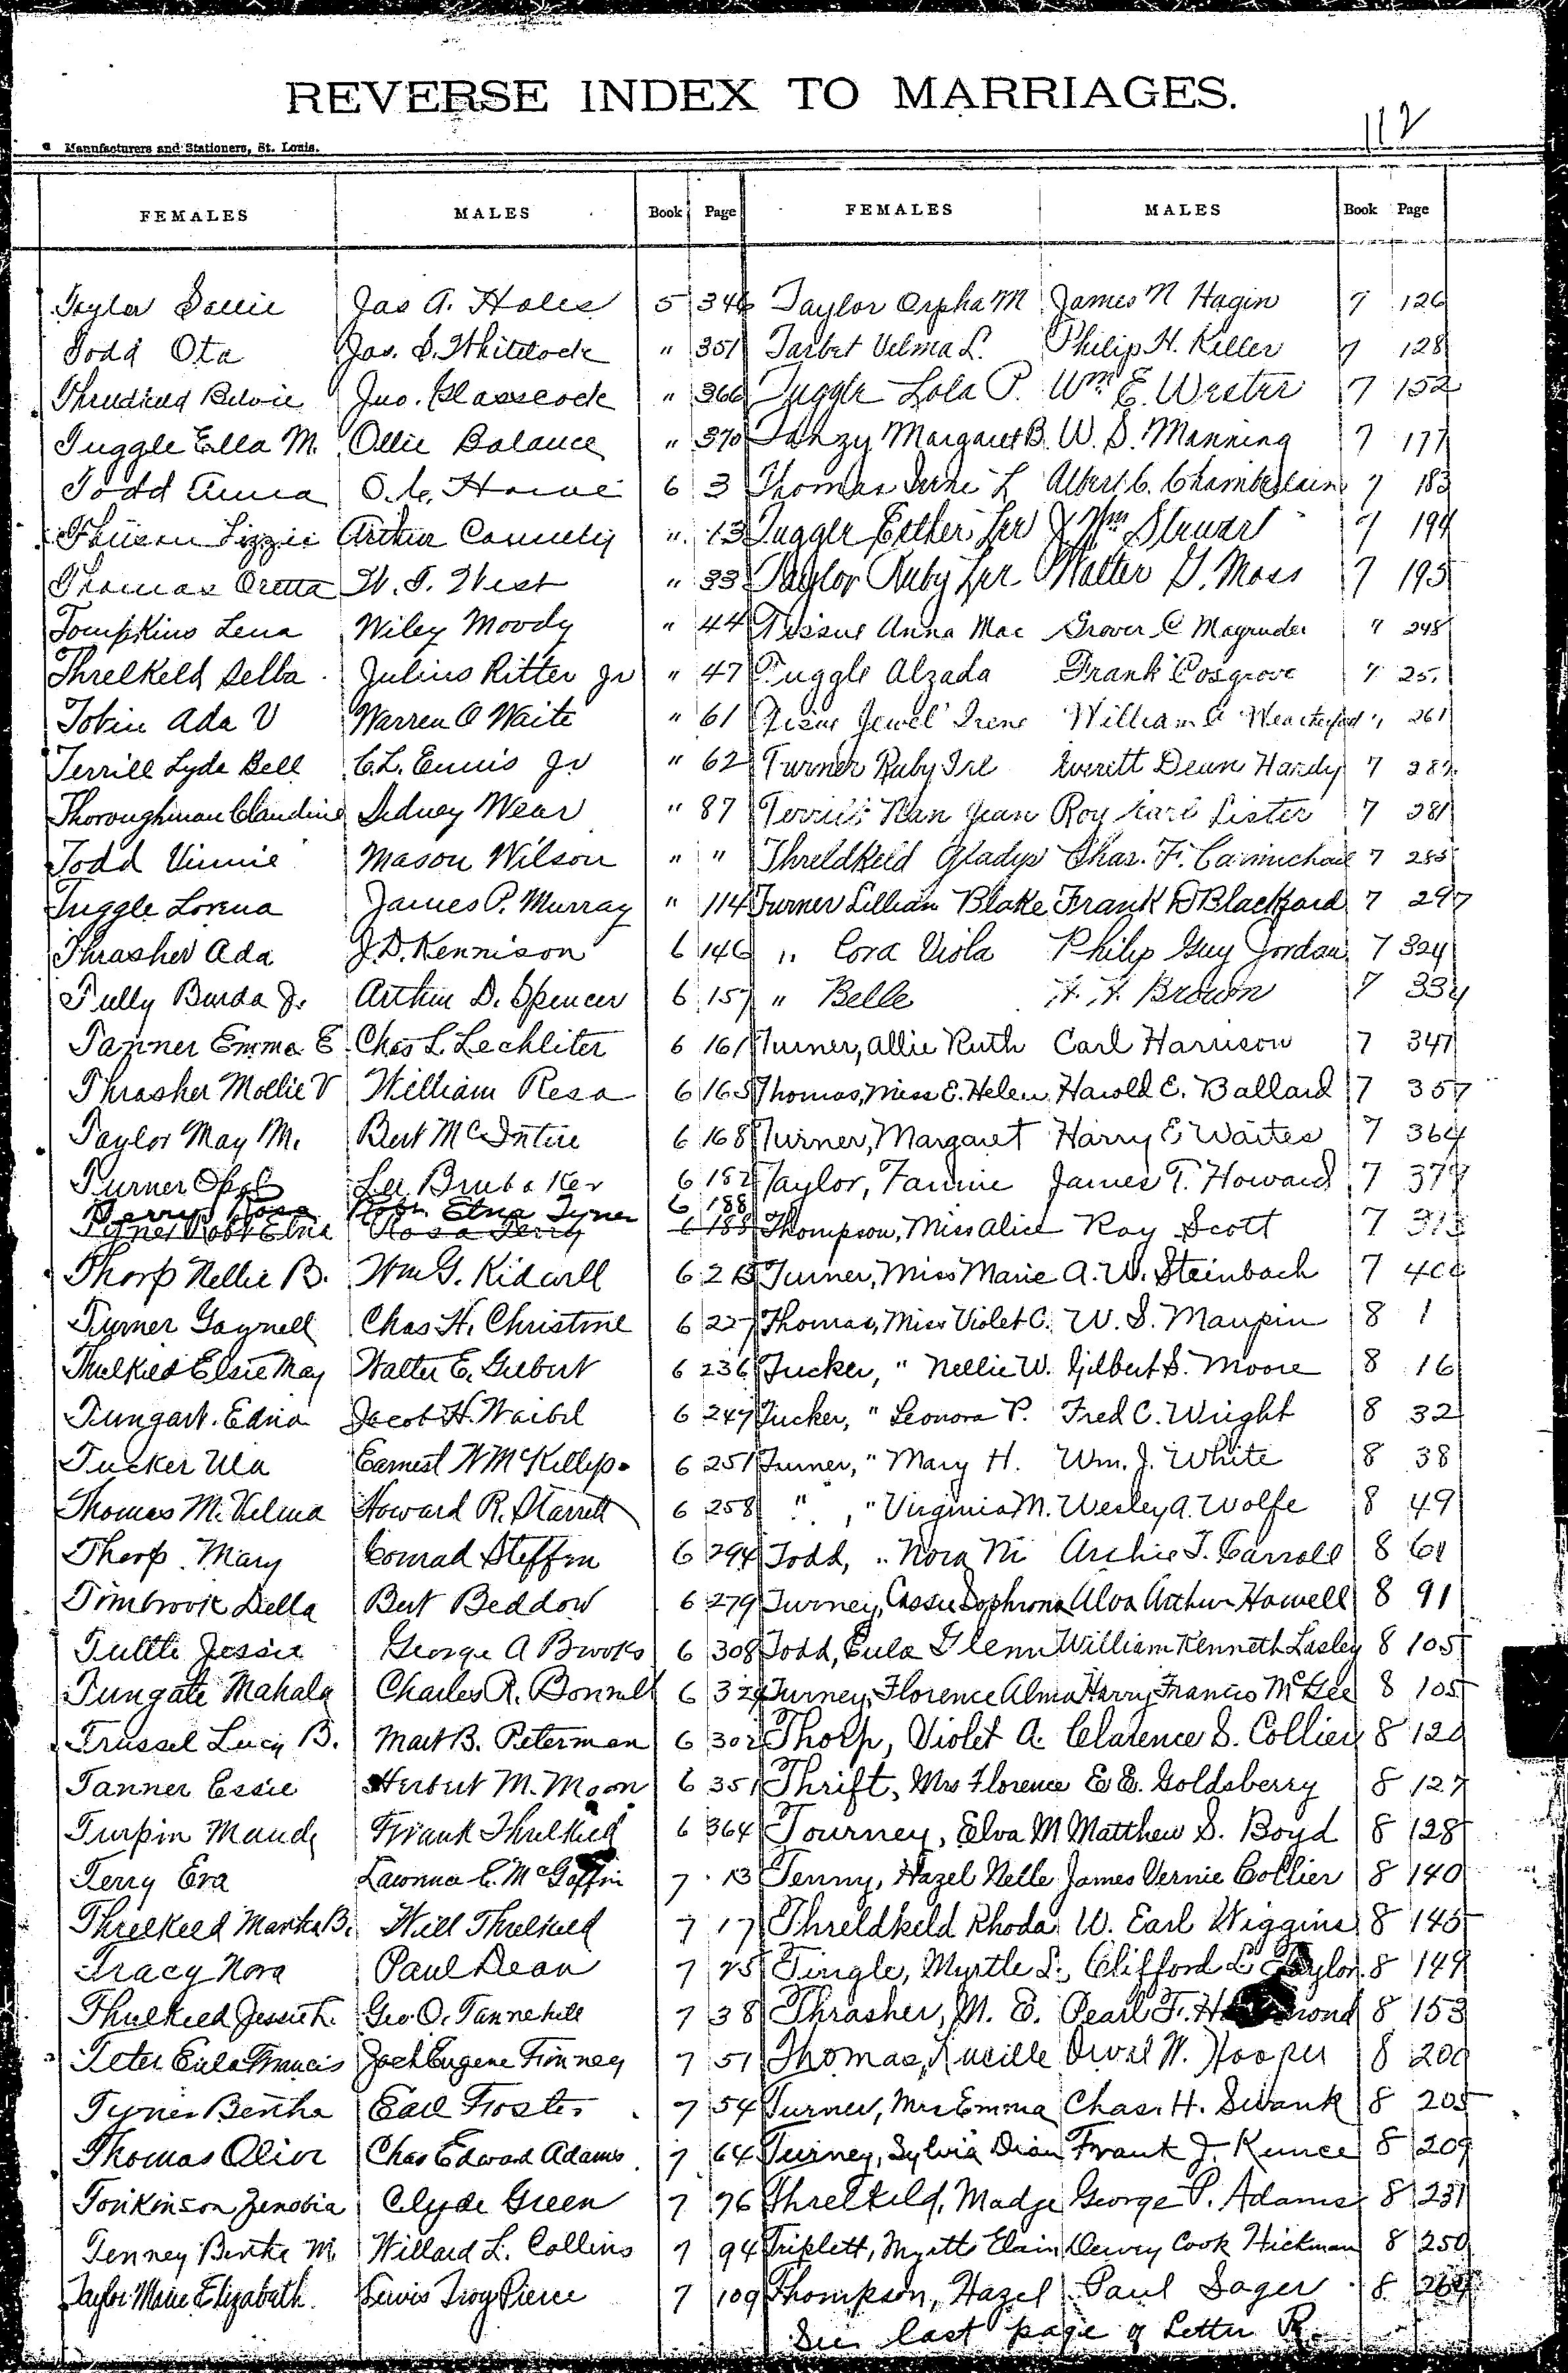 REVERSE INDEX TO MARRIAGES.
112
Manufacturers and Stationers, St. Louis.
FEMALES MALES Book Page FEMALES MALES Book Page
Taylor Sallie Jas A. Holes 5 346 Taylor Orpha M James N Hagin 7 126
Todd Ota Jas. S. Whitlock " 351 Tarbet Velma L. Philip H. Keller 7 128
Jno. Glasscock " 366 Tuggle Lola P. Wm E. Wester 7 152
Tuggle Ella M. Ollie Balance " 370 Margaret B. W. S. Manning 7 177
Todd Anna O. C. 6 3 Thomas Irene L Albert C. Chamberlain 7 183
Lizzie Arthur Connelly " 13 Tuggle Esther Lee J Wm Stewart 7 194
Thomas Oretta W. T. West " 33 Taylor Ruby Lee Walter G. Moss 7 195
Tompkins Lena Wiley Moody " 44 Tissue Anna Mae Grover C Magruder " 248
Threlkeld Selba Julius Ritter Jr " 47 Tuggle Alzada Frank Cosgrove 7 25
Tobin Ada V Warren O Waite " 61 Jewel Irene William " 261
Terrill Lyde Bell C.L. Ennis Jr " 62 Turner Ruby Everett Dean Hardy 7
Thoroughman Claudine Sidney Wear " 87 Terrill Nan Jean Roy Earl Lister 7 281
Todd Vinnie Mason Wilson " " Threldkeld Gladys Chas. F. Carmichael 7 285
Tuggle Lorena James P. Murray " 114 Turner Lillian Blake Frank D Blackford 7 297
Thrasher Ada J.D. Kennison 6 146 " Cora Viola Philip Guy Jordan 7 324
Tully Burda J. Arthur D. Spencer 6 157 " Belle Brown 7 334
Tanner Emma E Chas L. Lechliter 6 161 Turner, Allie Ruth Carl Harrison 7 347
Thrasher Mollie V William Resa 6 165 Thomas, Miss E. Helen Harold E. Ballard 7 357
Taylor May M. Bert McIntire 6 168 Turner, Margaret Harry E Waites 7 364
Turner Opal Lee Brubaker 6 182 Taylor, Fannie James T. Howard 7 379
Terry Rosa Robt. Etna Tyner 6 188
Tyner Robt Etna Rosa Terry 6 188 Thompson, Miss Alice Ray Scott 7
Thorp Nellie B. Wm G. Kidwell 6 213 Turner, Miss Marie A. W. Steinbach 7 400
Turner Gaynell Chas H. Christine 6 227 Thomas, Miss Violet C. W. S. Maupin 8 1
Thulkeld Elsie May Walter E. Gilbert 6 236 Tucker, " Nellie W. Gilbert S. Moore 8 16
Tungart. Edna Jacob H. Waibel 6 247 Tucker, " Leonora P. Fred C. Wright 8 32
Tucker Ula Earnest W McKillip. 6 251 Turner, " Mary H. Wm. J. White 8 38
Thomas M. Velma Howard R. Starrett 6 258 " , " Virginia M. Wesley A. Wolfe 8 49
Thorp Mary Conrad Steffin 6 294 Todd, " Nora M Archie T. Carroll 8 61
Timbrook Della Bert Beddow 6 279 Turney, Cassie Sophrona Alva Arthur Howell 8 91
Tuttle Jessie George A Brooks 6 308 Todd, Eula Glenn William Kenneth Lasley 8 105
Tungate Mahala Charles R. Bonnell 6 329 Turney, Florence Alma Harry Francis McGee 8 105
Trussel Lucy B. Mart B. Peterman 6 302 Thorp, Violet A. Clarence S. Collier 8 120
Tanner Essie Herbert M. Moon 6 351 Thrift, Mrs Florence E. E. Goldsberry 8 127
Turpin Maude Frank Thrulkeld 6 364 Tourney, Elva M Matthew S. Boyd 8 128
Terry Eva Lawrence C. McGaffin 7 13 Tenny, Hazel Nelle James Vernie Collier 8 140
Threlkeld Martha B. Will Threlkeld 7 17 Threldkeld Rhoda W. Earl Wiggins 8 145
Tracy Nora Paul Dean 7 25 Tingle, Myrtle L. Clifford L Taylor 8 149
Thulkeld Jessie L. Geo. O. Tannehill 7 38 Thrasher, M. E. Pearl F. 8 153
Teter Eula Francis Joel Eugene Finney 7 51 Thomas, Lucille Orval W. Hooper 8 200
Tyner Bertha Earl Foster 7 54 Turner, Mrs Emma Chas. H. Swank 8 205
Thomas Olive Chas Edward Adams 7 64 Turney, Sylvia Dian Frank J. Kunce 8 209
Tonkinson Zenobia Clyde Green 7 76 Threlkeld, Madge George P. Adams 8 231
Tenney Bertha M. Willard L. Collins 7 94 Triplett, Myrtle Elain Dewey Cook Hickman 8 250
Taylor Marie Elizabeth Lewis Troy Pierce 7 109 Thompson, Hazel Paul Sager 8 264
See last page of Letter R.